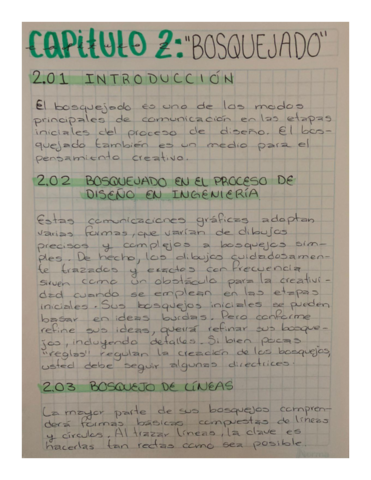 CAPÍTULO 2: "BOSQUEJADO"
2.01 INTRODUCCIÓN
El bosquejado es uno de los modos
principales de comunicación en las etapas
iniciales del proceso de diseño. El bos-
quejado también es un medio para el
pensamiento creativo.
2.02 BOSQUEJADO EN EL PROCESO DE
DISEÑO EN INGENIERÍA
Estas comunicaciones gráficas adoptan
varias formas, que varían de dibujos
precisos y complejos a bosquejos sim-
ples. De hecho, los dibujos cuidadosamen-
te trazados y exactos con frecuencia
sirven como un obstáculo para la creativi-
dad cuando se emplean en las etapas
iniciales. Sus bosquejos iniciales se pueden
basar en ideas burdas. Pero conforme
refine sus ideas, querrá refinar sus bosque-
jos, incluyendo detalles. Si bien pocas
"reglas" regulan la creación de los bosquejos,
usted debe seguir algunas directrices.
2.03 BOSQUEJO DE LÍNEAS
La mayor parte de sus bosquejos compren-
derá formas básicas compuestas de líneas
y círculos. Al trazar líneas, la clave es
hacerlas tan rectas como sea posible.